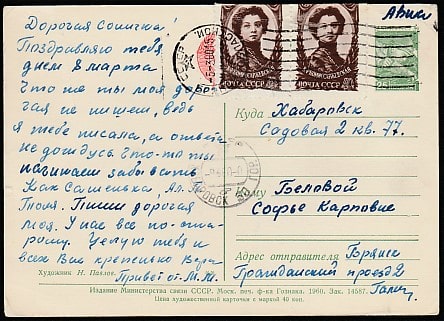 Дорогая Сонечка!
Поздравляю тебя
днем 8 марта
Что же ты моя доро-
гая не пишешь, ведь
я тебе писала, а ответа
не дождусь. Что-то ты
начинаешь забывать
Как Сашенька, Ал.
Тоня. Пиши дорогая
моя. У нас все по-ста-
рому. Целую тебя и
всех Вас крепко Вера
Привет от М.М.
Художник Н. Павлов.
Авиа
ПОЧТА СССР
ПОЧТА СССР
Куда Хабаровск
Садовая 2 кв. 77.
Кому Беловой
Софье Карповне
Адрес отправителя Брянск
Гражданский проезд 2
Издание Министерства связи СССР. Моск. печ. ф-ка Гознака. 1960. Зак. 14587.
Цена художественной карточки с маркой 40 коп.